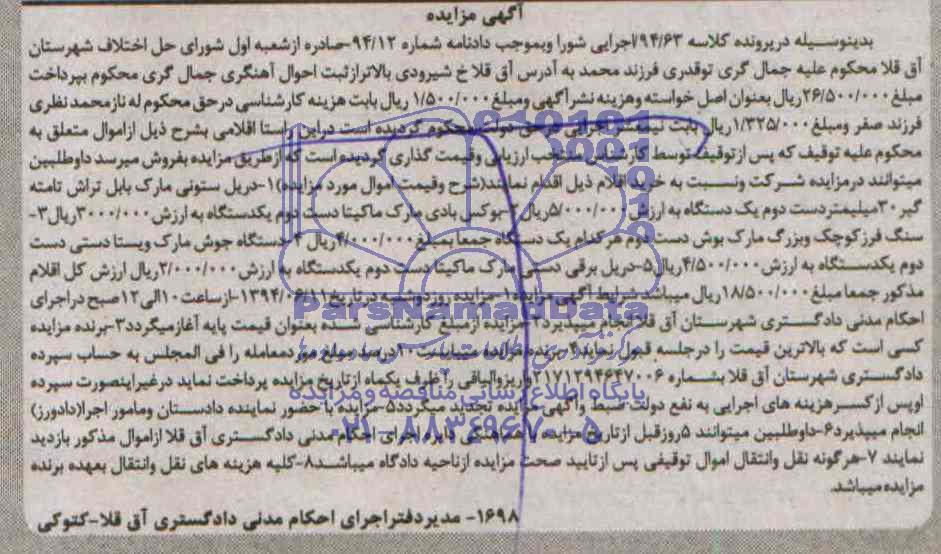 آگهی مزایده
بدینوسیله درپرونده کلاسه ۹۴/۶۳/اجرایی شورا وبموجب دادنامه شماره ۹۴/۱۲-صادره ازشعبه اول شورای حل اختلاف شهرستان
آق قلا محکوم علیه جمال گری توقدری فرزند محمد به آدرس آق قلا خ شیرودی بالاترازثبت احوال آهنگری جمال گری محکوم بپرداخت
مبلغ ۲۶/۵۰۰/۰۰۰ریال بعنوان اصل خواسته وهزینه نشرآگهی ومبلغ ۱/۵۰۰/۰۰۰ ریال بابت هزینه کارشناسی درحق محکوم له نازمحمدنظری
فرزند صفر ومبلغ ۱/۳۲۵/۰۰۰ریال بابت نیمعشر اجرایی درحق دولت محکوم گردیده است دراین راستا اقلامی بشرح ذیل ازاموال متعلق به
محکوم علیه توقیف که پس ازتوقیف توسط کارشناس منتخب ارزیابی وقیمت گذاری گردیده است که ازطریق مزایده بفروش میرسد داوطلبین
میتوانند درمزایده شرکت ونسبت به خرید اقلام ذیل اقدام نمایند(شرح وقیمت اموال مورد مزایده)۱-دریل ستونی مارک بابل تراش تامته
گیر۳۰میلیمتردست دوم یک دستگاه به ارزش ۵/۰۰۰/۰۰۰ریال۲-بوکس بادی مارک ماکیتا دست دوم یکدستگاه به ارزش ۳۰۰۰/۰۰۰ریال۳-
سنگ فرزکوچک وبزرگ مارک بوش دست دوم هرکدام یک دستگاه جمعا بمبلغ ۴/۰۰۰/۰۰۰ریال ۴-دستگاه جوش مارک ویستا دستی دست
دوم یکدستگاه به ارزش ۴/۵۰۰/۰۰۰ریال۵-دریل برقی دستی مارک ماکیتا دست دوم یکدستگاه به ارزش ۲/۰۰۰/۰۰۰ریال ارزش کل اقلام
مذکور جمعا مبلغ ۱۸/۵۰۰/۰۰۰ریال میباشد شرایط آگهی مزایده۱-مزایده روزدوشنبه درتاریخ ۱۳۹۴/۰۶/۱۱-ازساعت ۱۰الی۱۲صبح دراجرای
احکام مدنی دادگستری شهرستان آق قلا انجام میپذیرد۲-مزایده ازمبلغ کارشناسی شده بعنوان قیمت پایه آغازمیگردد۳-برنده مزایده
کسی است که بالاترین قیمت را درجلسه قبول نماید۴-برنده مزایده میبایست ۱۰درصد مبلغ موردمعامله را فی المجلس به حساب سپرده
دادگستری شهرستان آق قلا بشماره ۲۱۷۱۲۹۴۶۴۷۰۰۶واریزوالباقی را ظرف یکماه ازتاریخ مزایده پرداخت نماید درغیراینصورت سپرده
اوپس ازکسرهزینه های اجرایی به نفع دولت ضبط وآگهی مزایده تجدید میگردد۵-مزایده با حضور نماینده دادستان ومامور اجرا(دادورز)
انجام میپذیرد۶-داوطلبین میتوانند ۵روزقبل ازتاریخ مزایده با هماهنگی دایره اجرای احکام مدنی دادگستری آق قلا ازاموال مذکور بازدید
نمایند ۷-هرگونه نقل وانتقال اموال توقیفی پس ازتایید صحت مزایده ازناحیه دادگاه میباشد۸-کلیه هزینه های نقل وانتقال بعهده برنده
مزایده میباشد.
۱۶۹۸- مدیردفتراجرای احکام مدنی دادگستری آق قلا-کتوکی
ParsNamadData
پایگاه اطلاع رسانی مناقصه و مزایده
۰۲۱-۸۸۳۴۹۶۷۰-۵